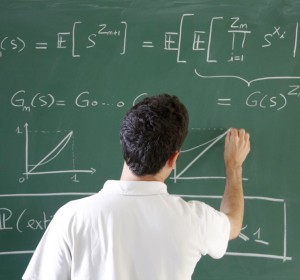 (s) = 𝔼[S^{Z_{n+1}}] = 𝔼[𝔼[∏_{i=1}^{Z_n} S^{X_i}
G_n(s) = G∘...∘G = G(s)^Z
1
0 1
ℙ(exti < 1